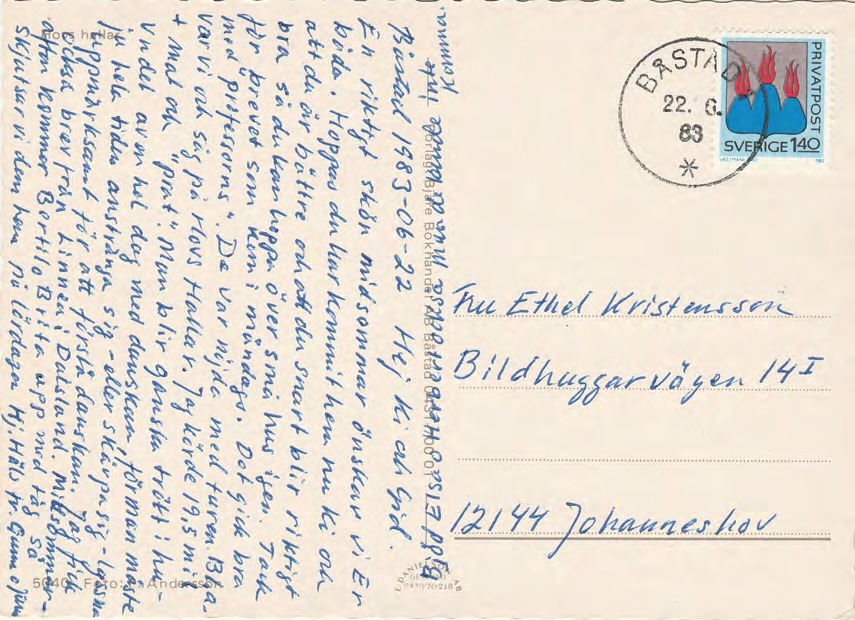 Hovs hallar
Båstad 1983-06-22 Hej Ki och Gid.
En riktigt skön midsommar önskar vi Er
båda. Hoppas du har kommit hem nu Ki och
att du är bättre och att du snart blir riktigt
bra så du kan hoppa över små hus igen. Tack
för brevet som kom i måndags. Det gick bra
med "professorns". De var nöjda med turen. Båda.
var vi och sig på Hovs Hallar. Jag körde 19,5 mil
+ mat och "prat". Man blir ganska trött i hu-
vudet av en hel dag med danskan, för man måste
ju hela tiden anstränga sig - eller skärpa sig - lyssna
uppmärksamt för att förstå danskan. Jag fick
också brev från Linnea i Dalsland. Midsommar-
afton kommer Bertil o Brita upp med tåg så
skjutsar vi dem hem på lördagen. Hj. Häls. fr. Gunn o Juni
Förlag: Bjäre Bokhandel AB Båstad 0431-700 01
kunna.
5040 Foto: P. Andersson
E. DANIELSON AB
BÅSTAD
22. 6.
83
*
PRIVATPOST
SVERIGE 140
Fru Ethel Kristensson
Bildhuggarvägen 14 I
12144 Johanneshov